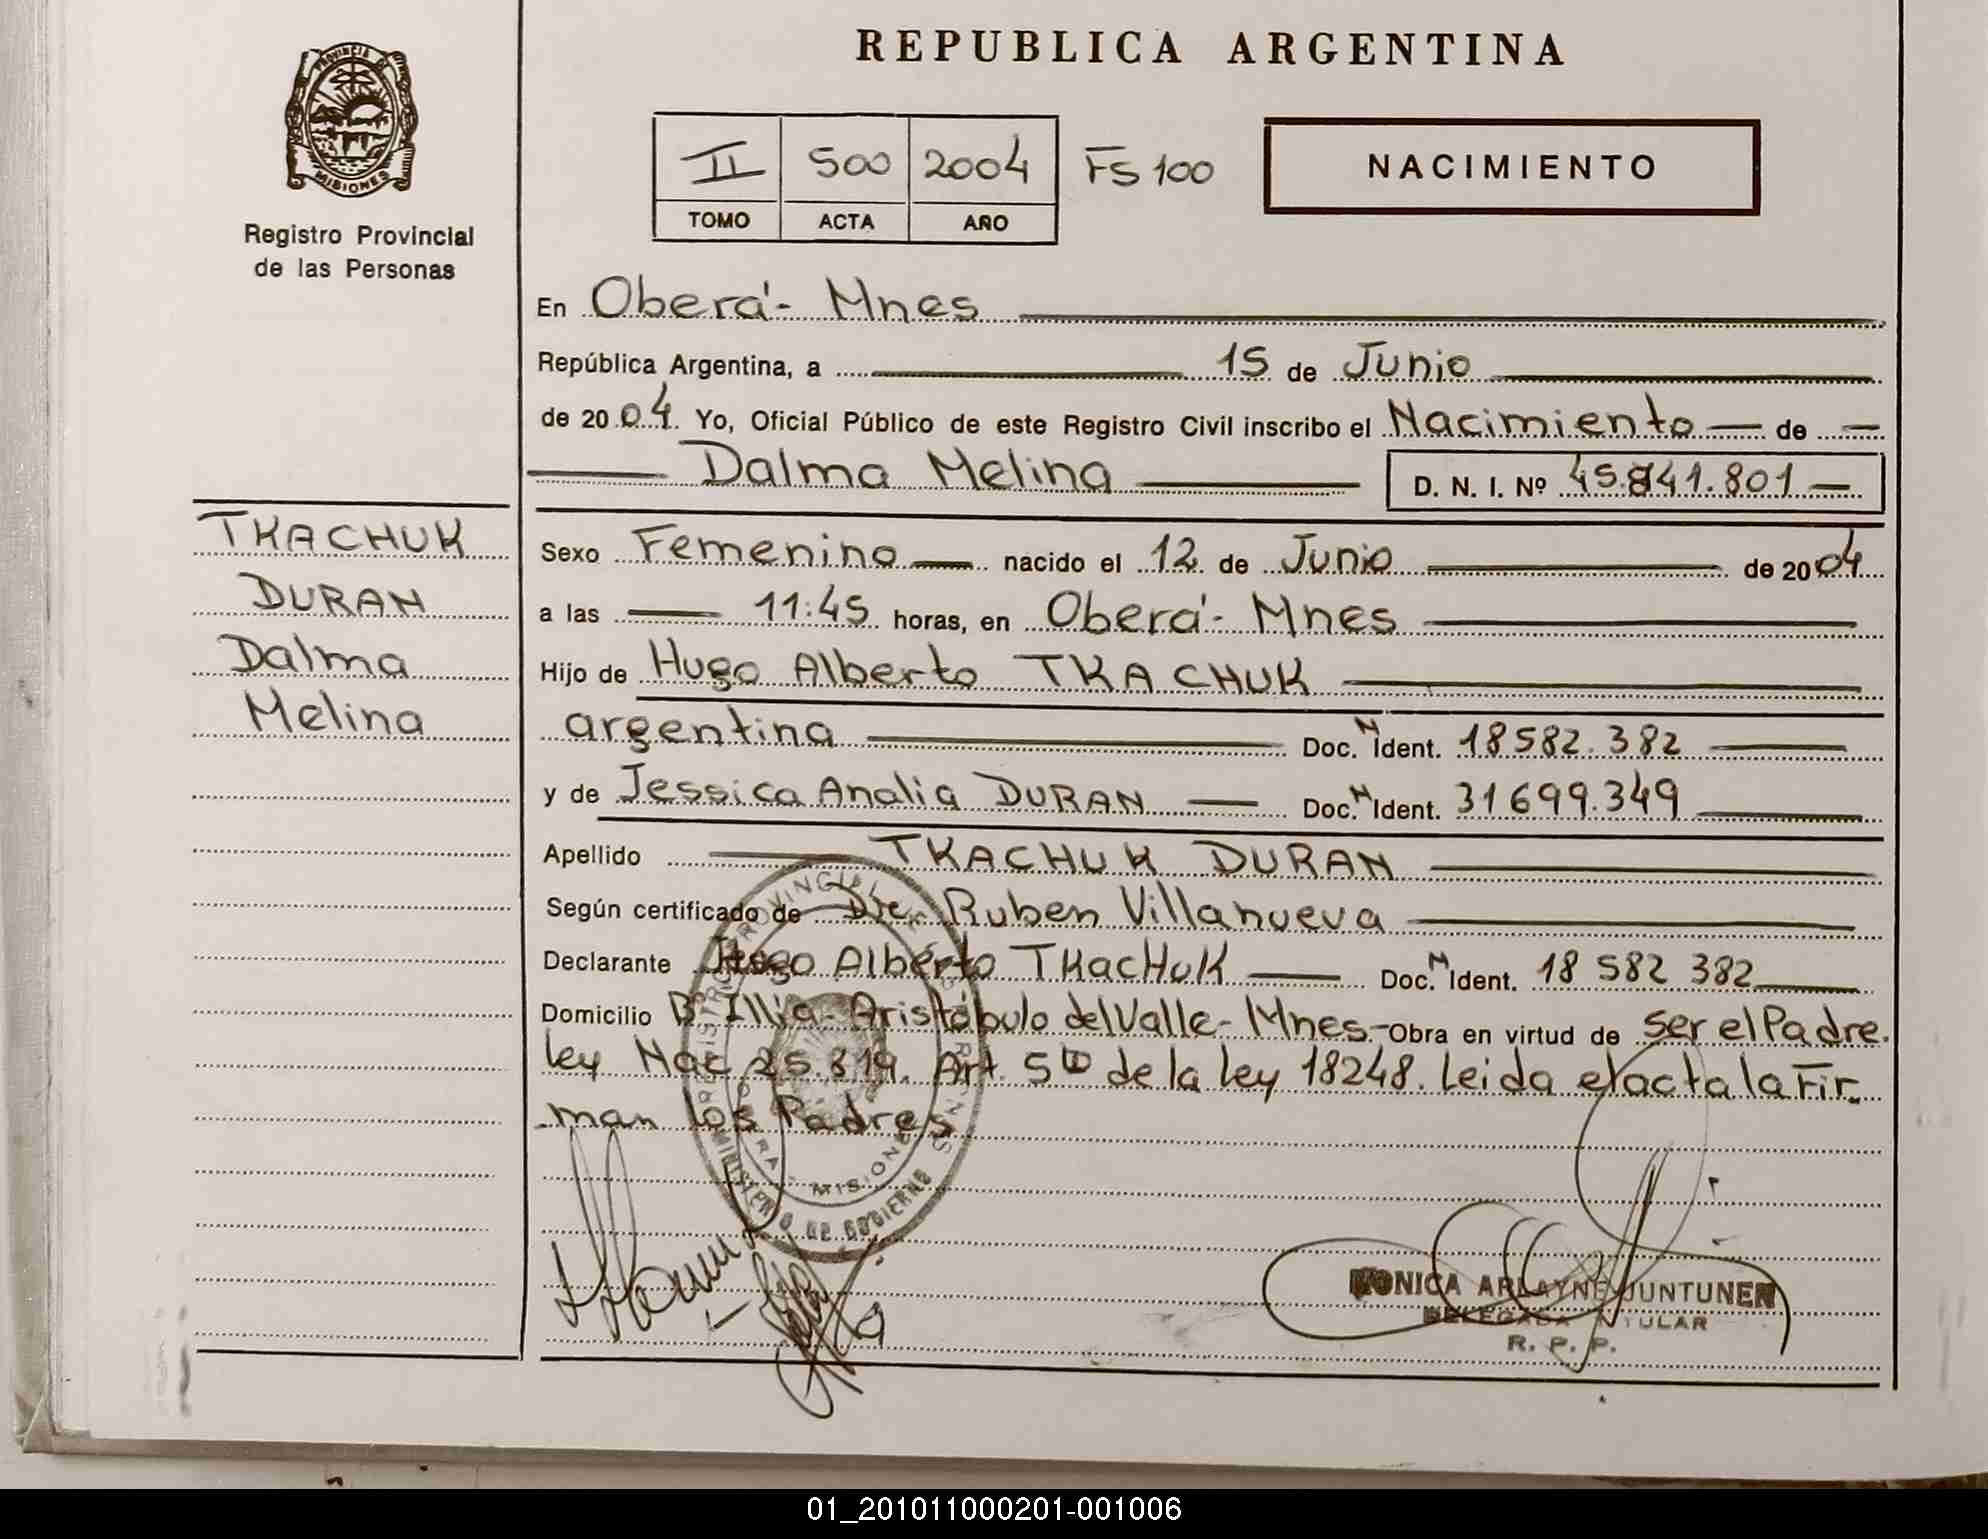 REPUBLICA ARGENTINA
PROVINCIA DE
MISIONES
Registro Provincial
de las Personas
II 500 2004 FS 100
TOMO ACTA AÑO
NACIMIENTO
En Oberá - Mnes
República Argentina, a 15 de Junio
de 2004. Yo, Oficial Público de este Registro Civil inscribo el Nacimiento de
Dalma Melina D. N. I. Nº 45.841.801
TKACHUK
DURAN
Dalma
Melina
Sexo Femenino nacido el 12 de Junio de 2004
a las 11:45 horas, en Oberá - Mnes
Hijo de Hugo Alberto TKACHUK
argentina Doc. N Ident. 18582.382
y de Jessica Analia DURAN Doc. N Ident. 31699.349
Apellido TKACHUK DURAN
Según certificado de Ruben Villanueva
Declarante Hugo Alberto TKacHuK Doc. N Ident. 18 582 382
Domicilio Bº Illia - Aristóbulo del Valle - Mnes - Obra en virtud de ser el Padre.
ley Nac 25.819. Art. 5to de la ley 18248. Leida el acta la Fir-
man los Padres
REGISTRO PROVINCIAL DE LAS PERSONAS
MISIONES
MINISTERIO DE GOBIERNO
MONICA ARLAYNE JUNTUNEN
DELEGADA TITULAR
R. P. P.
01_201011000201-001006